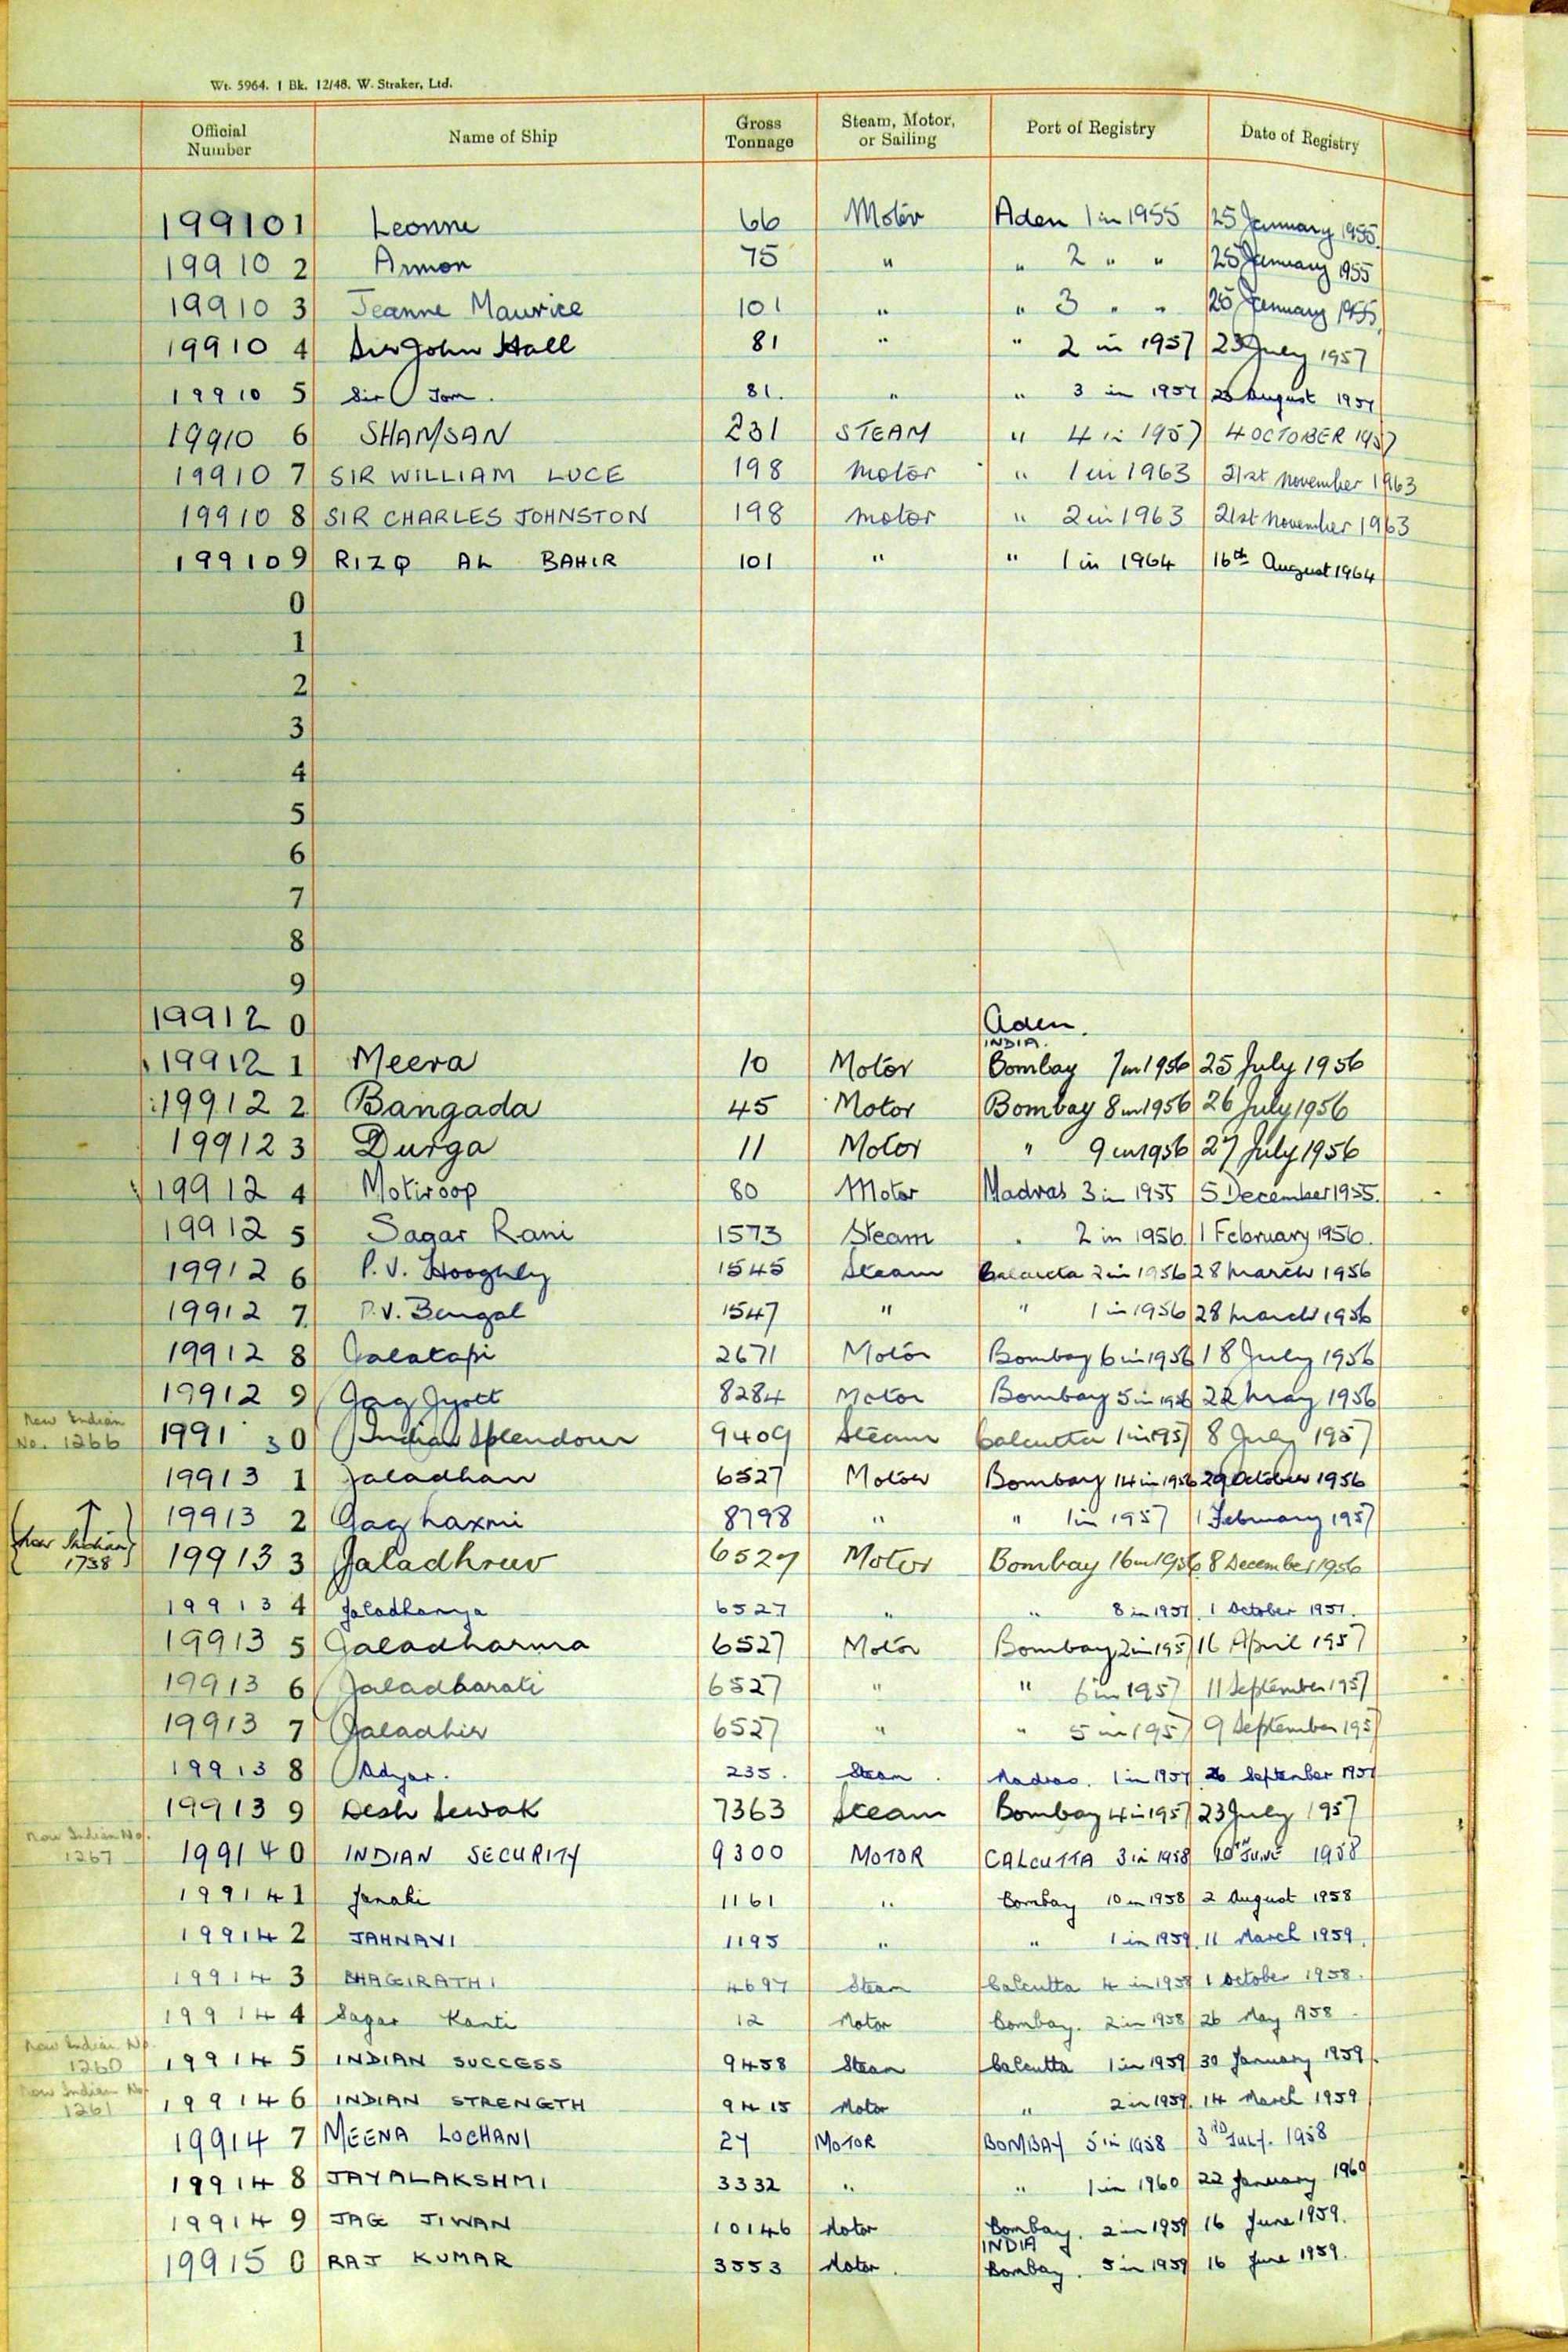 Wt. 5964. 1 Bk. 12/48. W. Straker, Ltd.
Official Number Name of Ship Gross Tonnage Steam, Motor, or Sailing Port of Registry Date of Registry
199101 Leonne 66 Motor Aden 1 in 1955 25 January 1955.
199102 Armon 75 " " 2 " " 25 January 1955
199103 Jeanne Maurice 101 " " 3 " " 25 January 1955
199104 Sir John Hall 81 " " 2 in 1957 23 July 1957
199105 Sir Tom. 81. " " 3 in 1957 August 1957
199106 SHAMSAN 231 STEAM " 4 in 1957 4 OCTOBER 1957
199107 SIR WILLIAM LUCE 198 Motor " 1 in 1963 21st November 1963
199108 SIR CHARLES JOHNSTON 198 Motor " 2 in 1963 21st November 1963
199109 RIZQ AL BAHIR 101 " " 1 in 1964 16th August 1964
0
1
2
3
4
5
6
7
8
9
199120 Aden.
INDIA.
199121 Meera 10 Motor Bombay 7 in 1956 25 July 1956
199122 Bangada 45 Motor Bombay 8 in 1956 26 July 1956
199123 Durga 11 Motor " 9 in 1956 27 July 1956
199124 Motiroop 80 Motor Madras 3 in 1955 5 December 1955.
199125 Sagar Rani 1573 Steam " 2 in 1956. 1 February 1956.
199126 P.V. Hooghly 1545 Steam Calcutta 2 in 1956 28 March 1956
199127 P.V. Bengal 1547 " " 1 in 1956 28 March 1956
199128 Jalatapi 2671 Motor Bombay 6 in 1956 18 July 1956
199129 Jag Jyoti 8284 Motor Bombay 5 in 1956 22 May 1956
New Indian No. 1266 199130 Indian Splendour 9409 Steam Calcutta 1 in 1957 8 July 1957
199131 Jaladhan 6527 Motor Bombay 14 in 1956 29 October 1956
199132 Jag Laxmi 8798 " " 1 in 1957 1 February 1957
(New Indian 1738) 199133 Jaladhruv 6527 Motor Bombay 16 in 1956. 8 December 1956
199134 Jaladhanya 6527 " " 8 in 1957. 1 October 1957.
199135 Jaladharma 6527 Motor Bombay 2 in 1957 16 April 1957
199136 Jaladharati 6527 " " 6 in 1957 11 September 1957
199137 Jaladhir 6527 " " 5 in 1957 9 September 1957
199138 Adyar. 235. Steam. Madras. 1 in 1957 26 September 1957
199139 Desh Sewak 7363 Steam Bombay 4 in 1957 23 July 1957
New Indian No. 1267 199140 INDIAN SECURITY 9300 MOTOR CALCUTTA 3 in 1958 10TH JUNE 1958
199141 Janaki 1161 " Bombay 10 in 1958 2 August 1958
199142 JAHNAVI 1195 " " 1 in 1959. 11 March 1959.
199143 BHAGIRATHI 4697 Steam Calcutta 4 in 1958 1 October 1958.
199144 Sagar Kanti 12 Motor Bombay. 2 in 1958 26 May 1958
New Indian No. 1260 199145 INDIAN SUCCESS 9458 Steam Calcutta 1 in 1959 30 January 1959.
New Indian No. 1261 199146 INDIAN STRENGTH 9415 Motor " 2 in 1959. 14 March 1959
199147 MEENA LOCHANI 24 MOTOR BOMBAY 5 in 1958 3RD JULY. 1958
199148 JAYALAKSHMI 3332 " " 1 in 1960 22 January 1960
199149 JAG JIWAN 10146 Motor Bombay. 2 in 1959 16 June 1959.
INDIA
199150 RAJ KUMAR 3553 Motor. Bombay. 5 in 1959 16 June 1959.